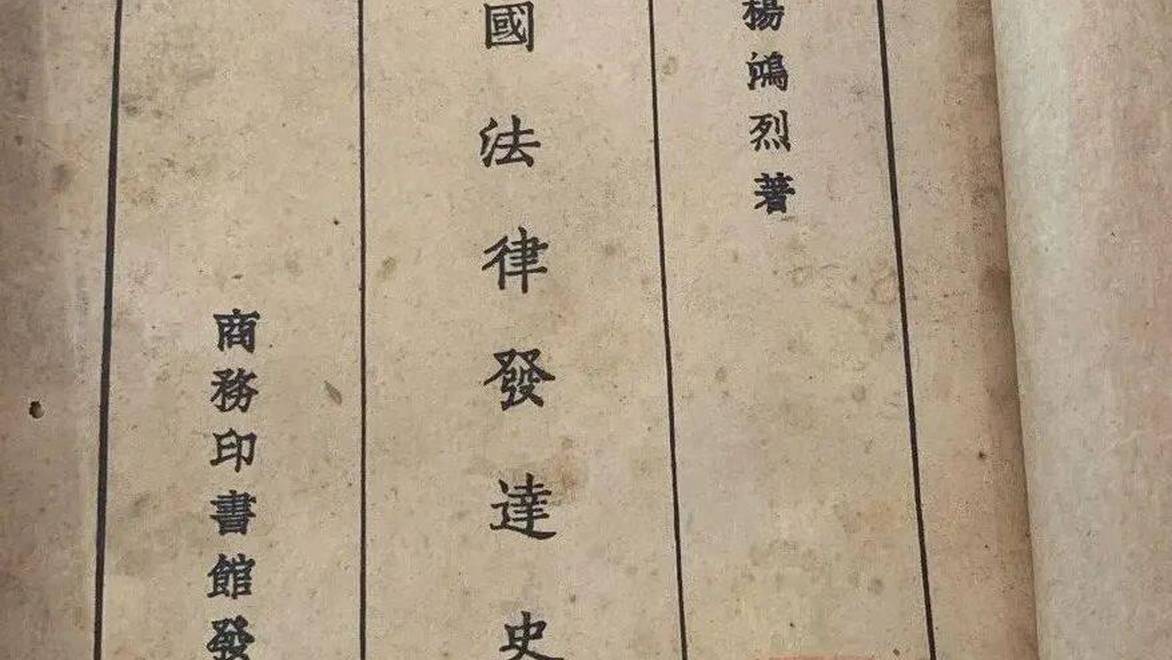 楊鴻烈著
國法律發達史
商務印書館發